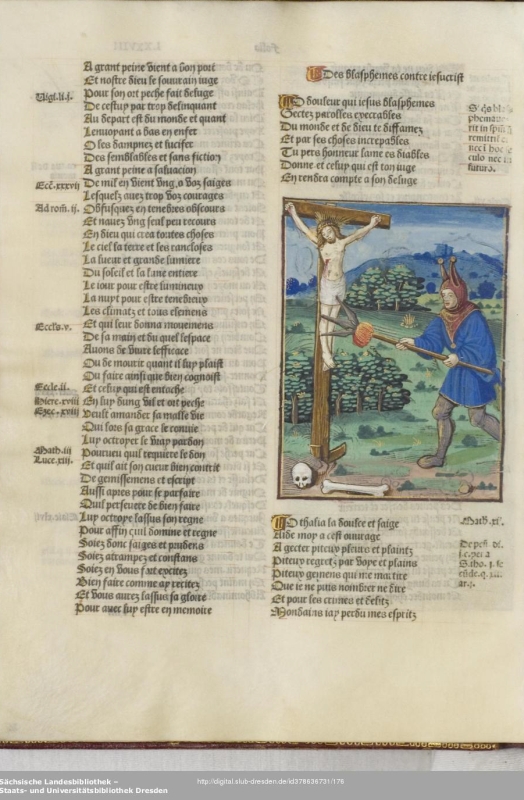 A grant peine vient a bon port
Et nostre dieu le souurain iuge
Pour son ort peche fait deluge
Vigi.li.i.
De cestuy par trop delinquant
Au depart est du monde et quant
Lenuoyant a bas en enfer
O les dampnez et lucifer
Des semblables et sans fiction
A grant peine a saluacion
Ecc.xxxvij
De mil en vient vng, o voz saiges
Lesquelz auez trop voz courages
Ad rom.ij.
Obfusquez en tenebres obscures
Et nauez vng seul peu recours
En dieu qui crea toutes choses
Le ciel la terre et les rancloses
La lueur et grande lumiere
Du soleil et la lune entiere
Le iour pour estre lumineux
La nuyt pour estre tenebreux
Les climatz et tous elemens
Eccls.v.
Et qui leur donna mouuemens
De sa main et du quel lespace
Auons de viure lefficace
Ou de mourir quant il luy plaist
Ou faire ainsi que bien cognoist
Eccle.ii.
Et celuy qui est entache
Hiere.xviii
En luy dung vil et ort peche
Ezec.xviij
Veult amander sa malle vie
Qui lors sa grace le conuie
Luy octroyer le vray pardon
Math.iii
Pourueu quil requiere le don
Luce.xiij.
Et quil ait son cueur bien contrit
De gemissemens et escript
Aussi apres pour se parfaire
Quil perseuere de bien faire
Luy octroye lassus son regne
Pour affin quil domine et regne
Soiez donc saiges et prudens
Soiez atrampez et constans
Soiez en vous fort excitez
Bien faire comme ay recitez
Et vous aurez lassus sa gloire
Pour auec luy estre en memoire
Des blasphemes contre iesucrist
O douleur qui iesus blasphemes
Gectez parolles execrables
Du monde et de dieu te diffamez
Et par ses choses increpables
Tu pers honneur lame es diables
Donne et celuy qui est ton iuge
En rendra compte a son deluge
rit in spiritu
remittit
nec i hoc se
culo nec in
futuro.
O thalia la doulce et saige
Aide moy a cest ouurage
A gecter piteux pleurs et plaintz
Piteux regretz par voye et plains
Piteux gemens qui me martire
Que ie ne puis nombrer ne dire
Et pour les crimes et delitz
Mondains iay perdu mes espritz
Math.xi.
De peni. di.
S.tho.
Sächsische Landesbibliothek –
Staats- und Universitätsbibliothek Dresden
http://digital.slub-dresden.de/id378636731/176